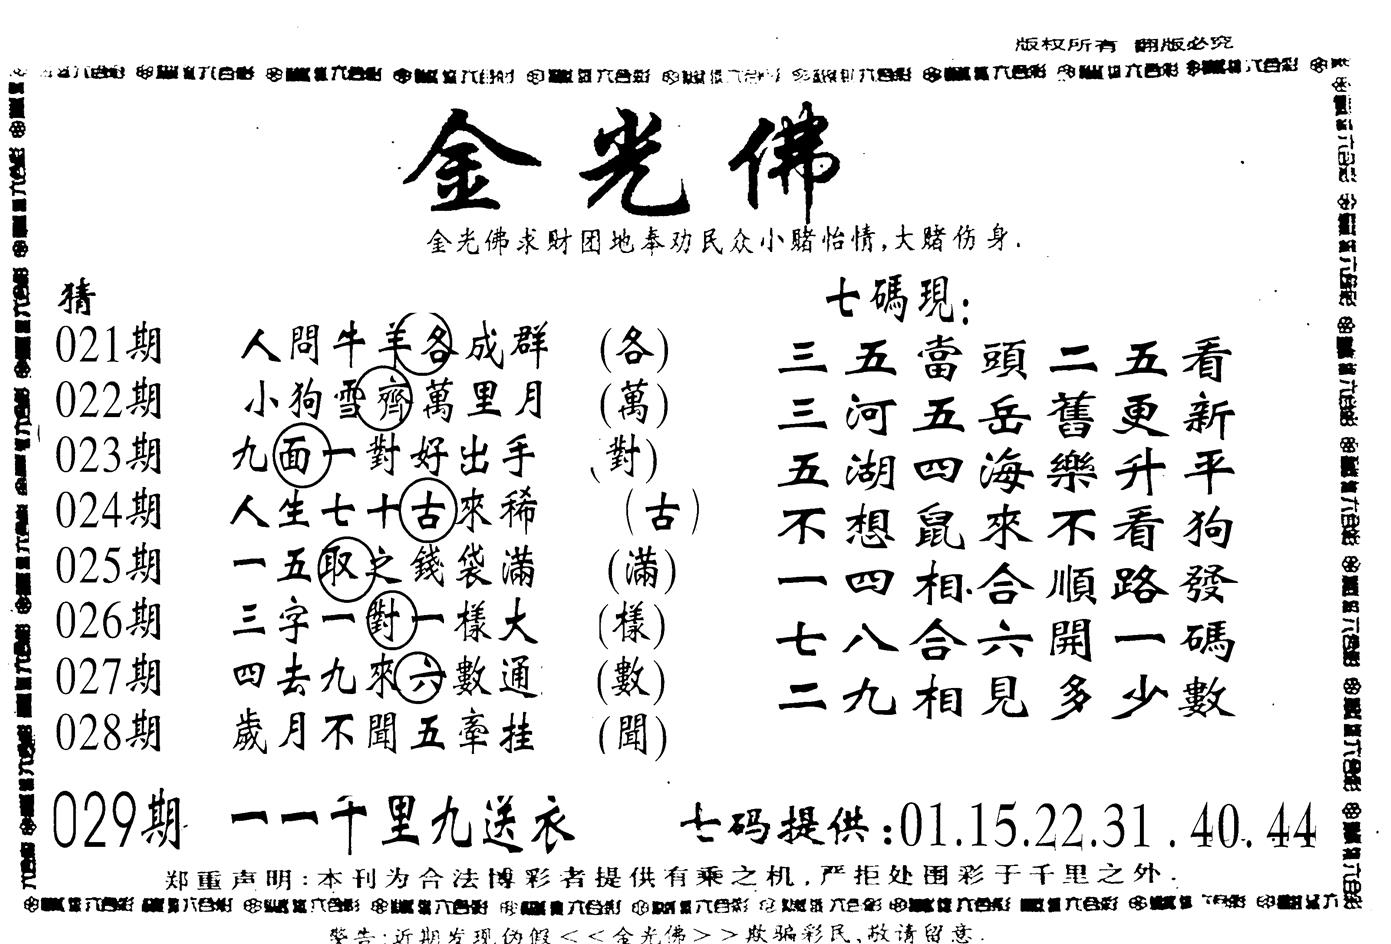 版权所有 翻版必究
金光佛
金光佛求财团地奉劝民众小赌怡情,大赌伤身.
猜
021期 人問牛羊各成群 (各)
022期 小狗雪齊萬里月 (萬)
023期 九面一對好出手 (對)
024期 人生七十古來稀 (古)
025期 一五取之錢袋滿 (滿)
026期 三字一對一樣大 (樣)
027期 四去九來六數通 (數)
028期 歲月不聞五牽挂 (聞)
七碼現:
三五當頭二五看
三河五岳舊更新
五湖四海樂升平
不想鼠來不看狗
一四相合順路發
七八合六開一碼
二九相見多少數
029期 一一千里九送衣 七码提供:01.15.22.31.40.44
郑重声明:本刊为合法博彩者提供有乘之机,严拒处围彩于千里之外.
警告:近期发现伪假<<金光佛>>欺骗彩民,敬请留意.